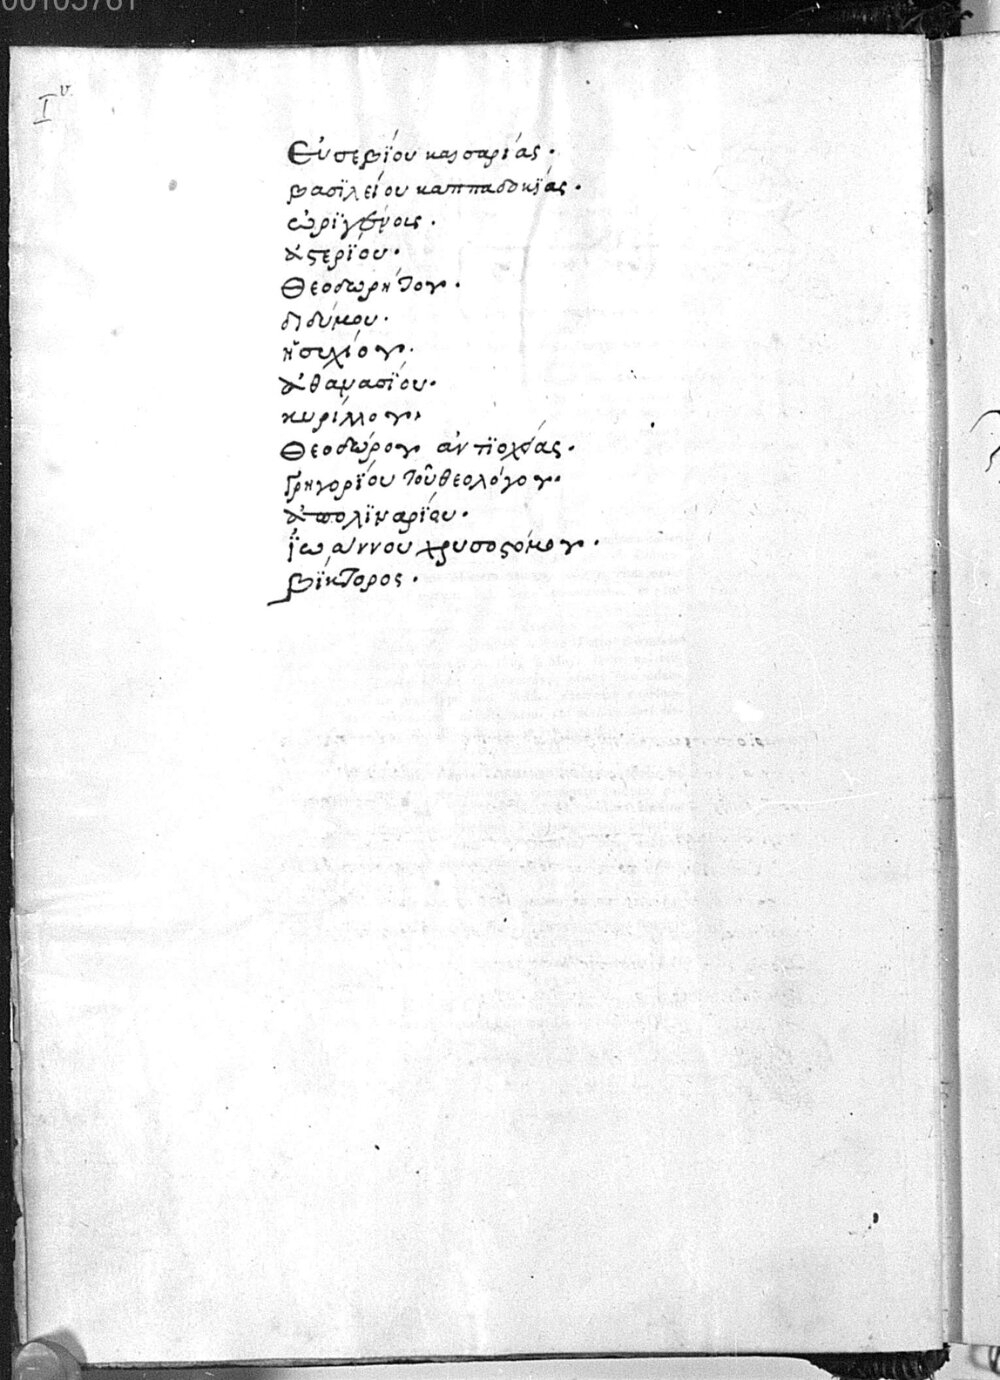 00105781
I v.
Εὐσεβΐου καισαρίας·
βασϊλείου καππαδοκΐας·
ὠρϊγένοις·
ἀστερΐου·
Θεοδωρήτου·
διδύμου·
ἡσυχίου·
ἀθανασΐου·
κυρίλλου·
Θεοδώρου ἀντϊοχείας·
Γρηγορΐου τοῦ θεολόγου·
ἀπολϊναρΐου·
ἰωάννου χρυσοστόμου·
βΐκτορος·